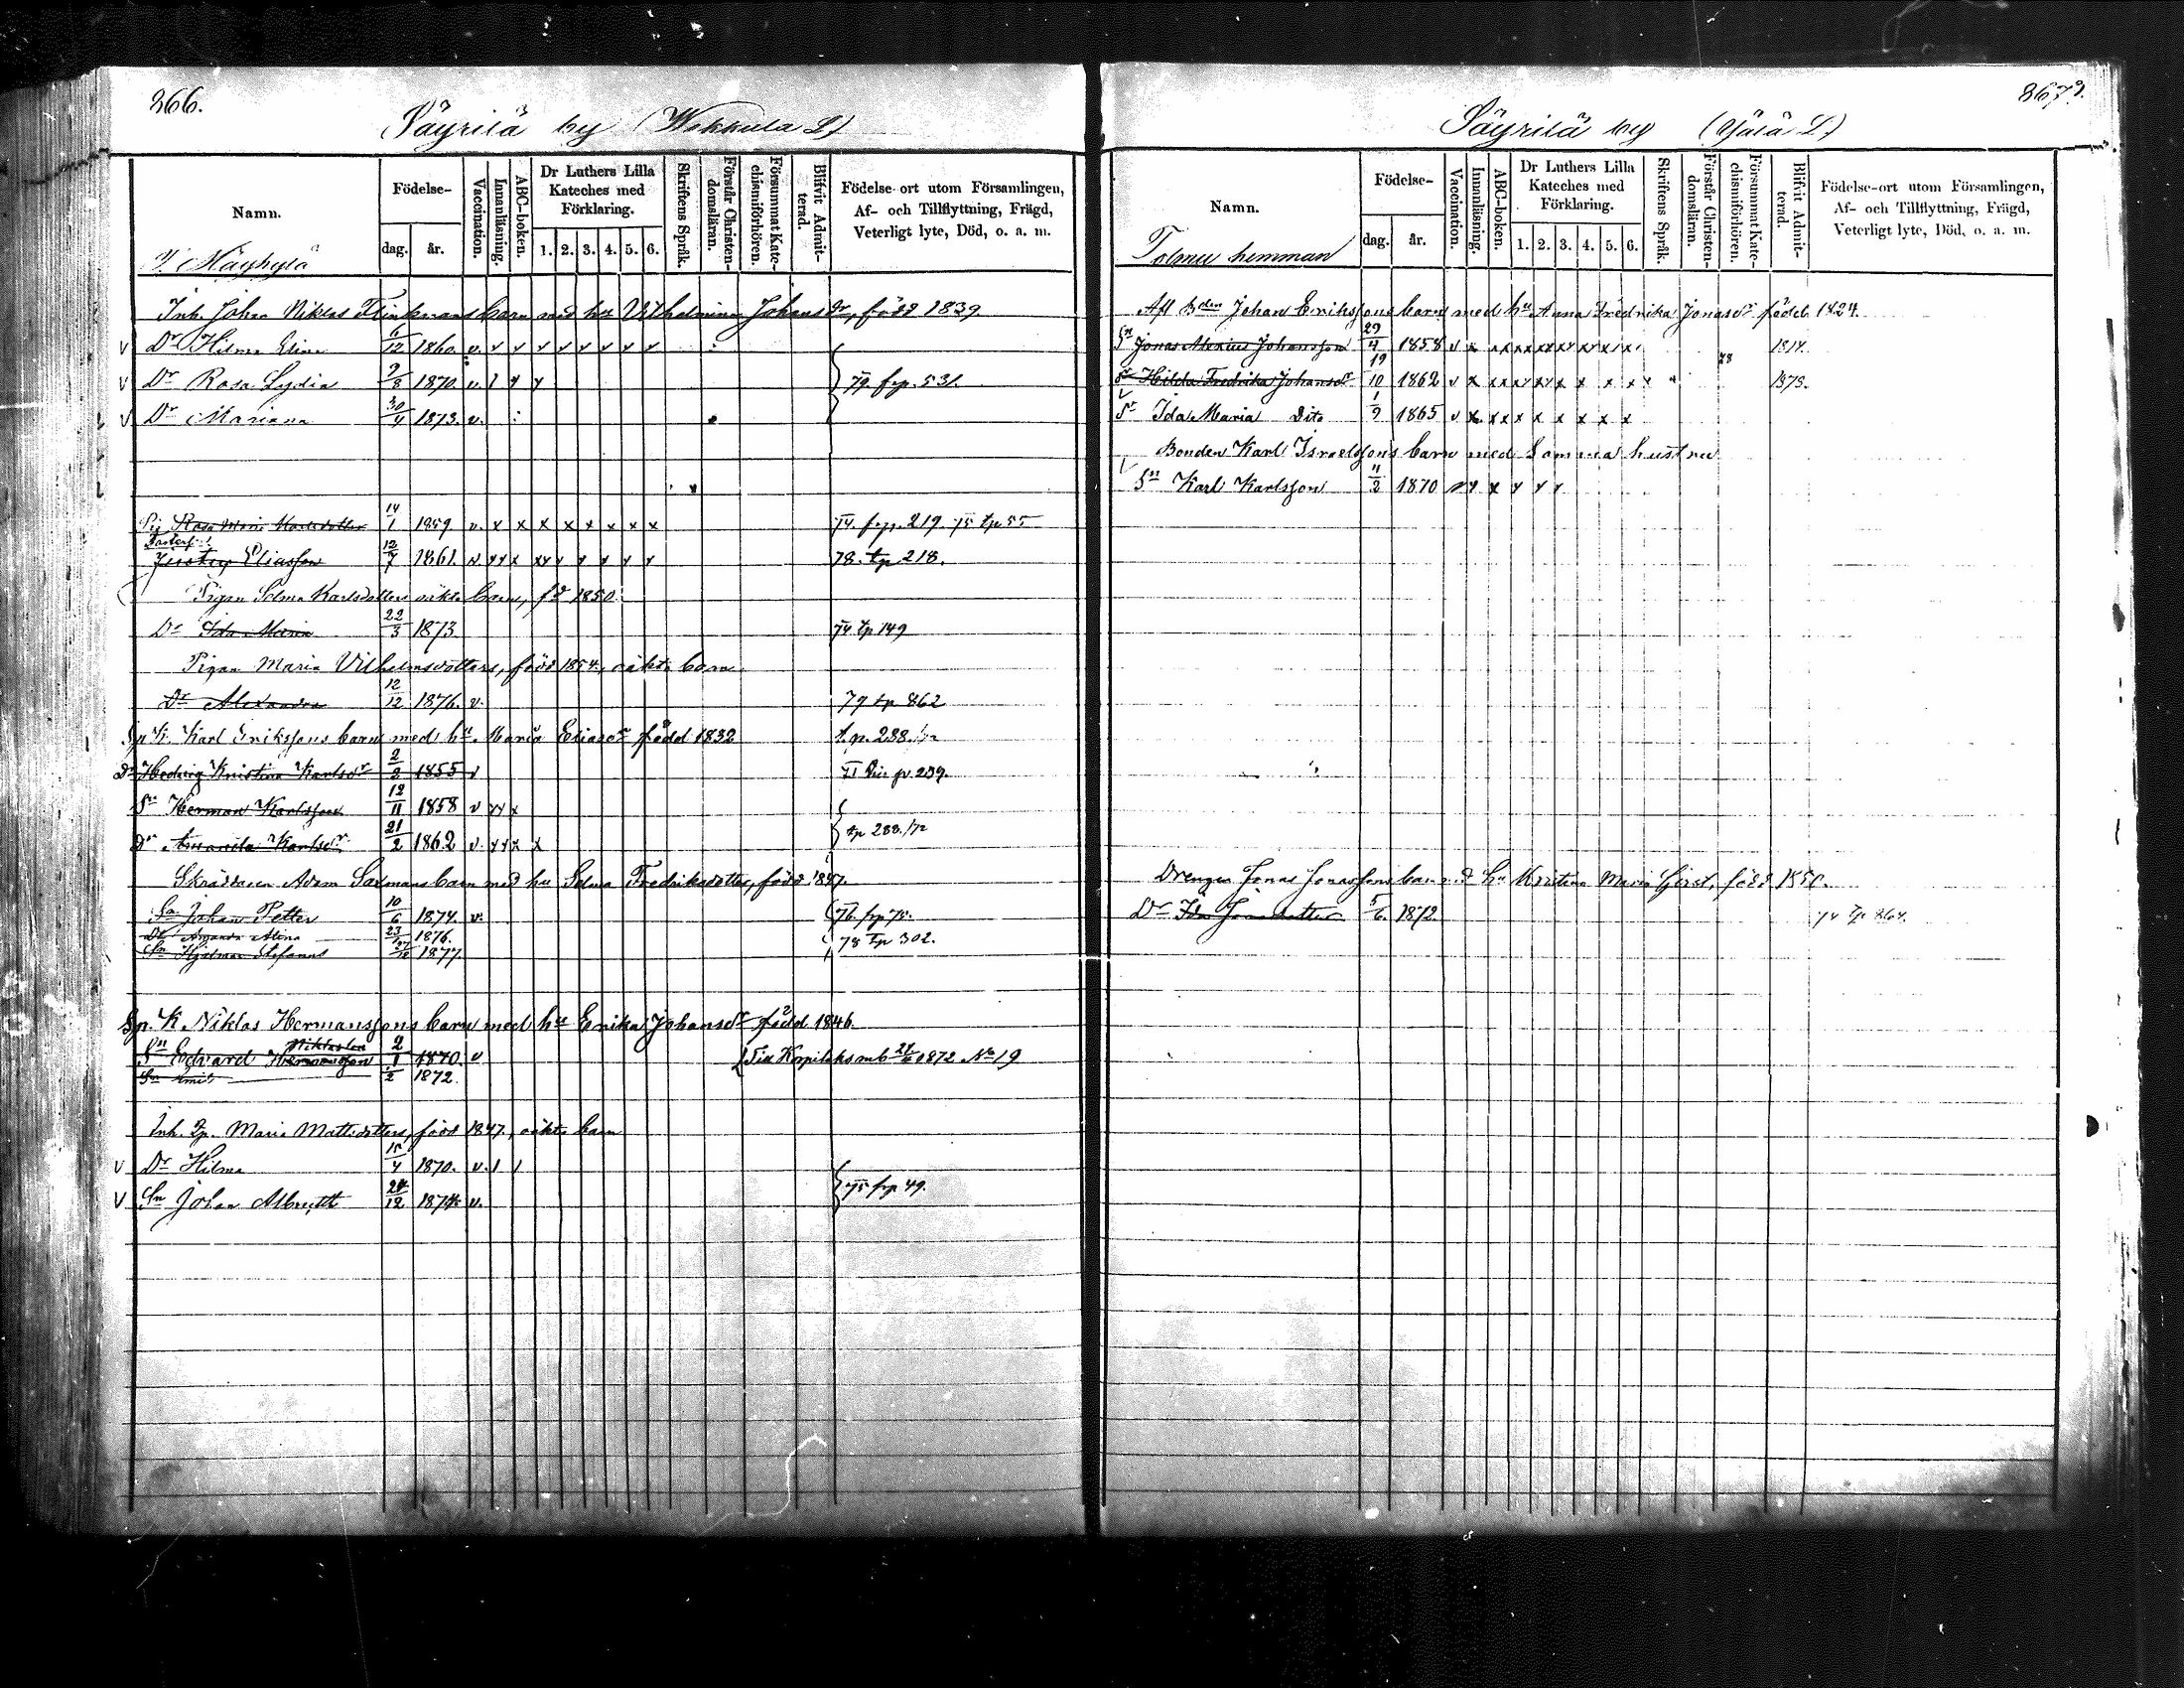 366.
Säyrilä by (Wekkula L)
Namn. Födelse- dag. år. Vaccination. Innanläsning. ABC-boken. Dr Luthers Lilla Kateches med Förklaring. 1. 2. 3. 4. 5. 6. Skriftens Språk. Förstår Christendomsläran. Försummat Katechismiförhören. Blifvit Admitterad. Födelse-ort utom Församlingen, Af- och Tillflyttning, Frägd, Veterligt lyte, Död, o. a. m.
Inh. Johan Niklas Flinkmans barn med hu Vilhelmina Johansdr, född 1839
v Dr Hilma Elina 6/12 1860. v.
v Dr Rosa Lydia 9/8 1870. v. 79 frp. 531.
v Dr Mariana 30/4 1873. v.
Pig Rosa Maria Karlsdotter 14/1 1859 v. x x x x x x x x 74. frp. 219. 75 tp 55
Fosters. Gustaf Eliasson 12/7 1861. v. 78. tp 218.
Pigan Selma Karlsdotters oäkta barn, fd 1850.
Dr Ida Maria 22/3 1873 74 tp 149
Pigan Maria Vilhelmsdotters, född 1854, oäkta barn
Dr Alexandra 12/12 1876. v. 79 tp 862
Sp. K. Karl Erikssons barn med hu Maria Eliasdr född 1832 t.p. 238.
Dr Hedvig Kristina Karlsdr 2/2 1855 v
Sn Herman Karlsson 12/11 1858 v
Dr Amanda Karlsdr 21/2 1862 v. tp 238./72
Skräddaren Adam Saxmans barn med hu Selma Fredriksdotter, född 1847.
Sn Johan Petter 10/6 1874. v. 76 frp 78.
Dr Amanda Alina 23/ 1876. 78 tp 302.
Sn Hjalmar Stefanus 27/12 1877
Sp. K Niklas Hermanssons barn med hu Erika Johansdr född 1846.
Sn Edvard Hermansson Niklasson 2/1 1870. v Till Kyrkslätt 1872 No 19
Sn Emil /2 1872.
Inh. Maria Mattsdotters, född 1847, oäkta barn
v Dr Hilma 15/4 1870. v.
v Sn Johan Albrecht 24/12 1874. v. 75 frp 49.
367.
Säyrilä by
Namn. Födelse- dag. år. Vaccination. Innanläsning. ABC-boken. Dr Luthers Lilla Kateches med Förklaring. 1. 2. 3. 4. 5. 6. Skriftens Språk. Förstår Christendomsläran. Försummat Katechismiförhören. Blifvit Admitterad. Födelse-ort utom Församlingen, Af- och Tillflyttning, Frägd, Veterligt lyte, Död, o. a. m.
Tolmu hemman
Afl Bden Johan Erikssons barn med hu Anna Fredrika Jonasdr född 1824.
Sn Jonas Alexius Johansson 29/4 1858 v
Dr Hilda Fredrika Johansdr 19/10 1862 v 78
Dr Ida Maria Dito 1/9 1865 v
Bonden Karl Israelssons barn med samma hustru
Sn Karl Karlsson 11/2 1870
Drengen Jonas Jonassons barn hu Kristina Maria född 1850.
Dr Ida Jonasdotter 5/6 1872 74 tp 864.